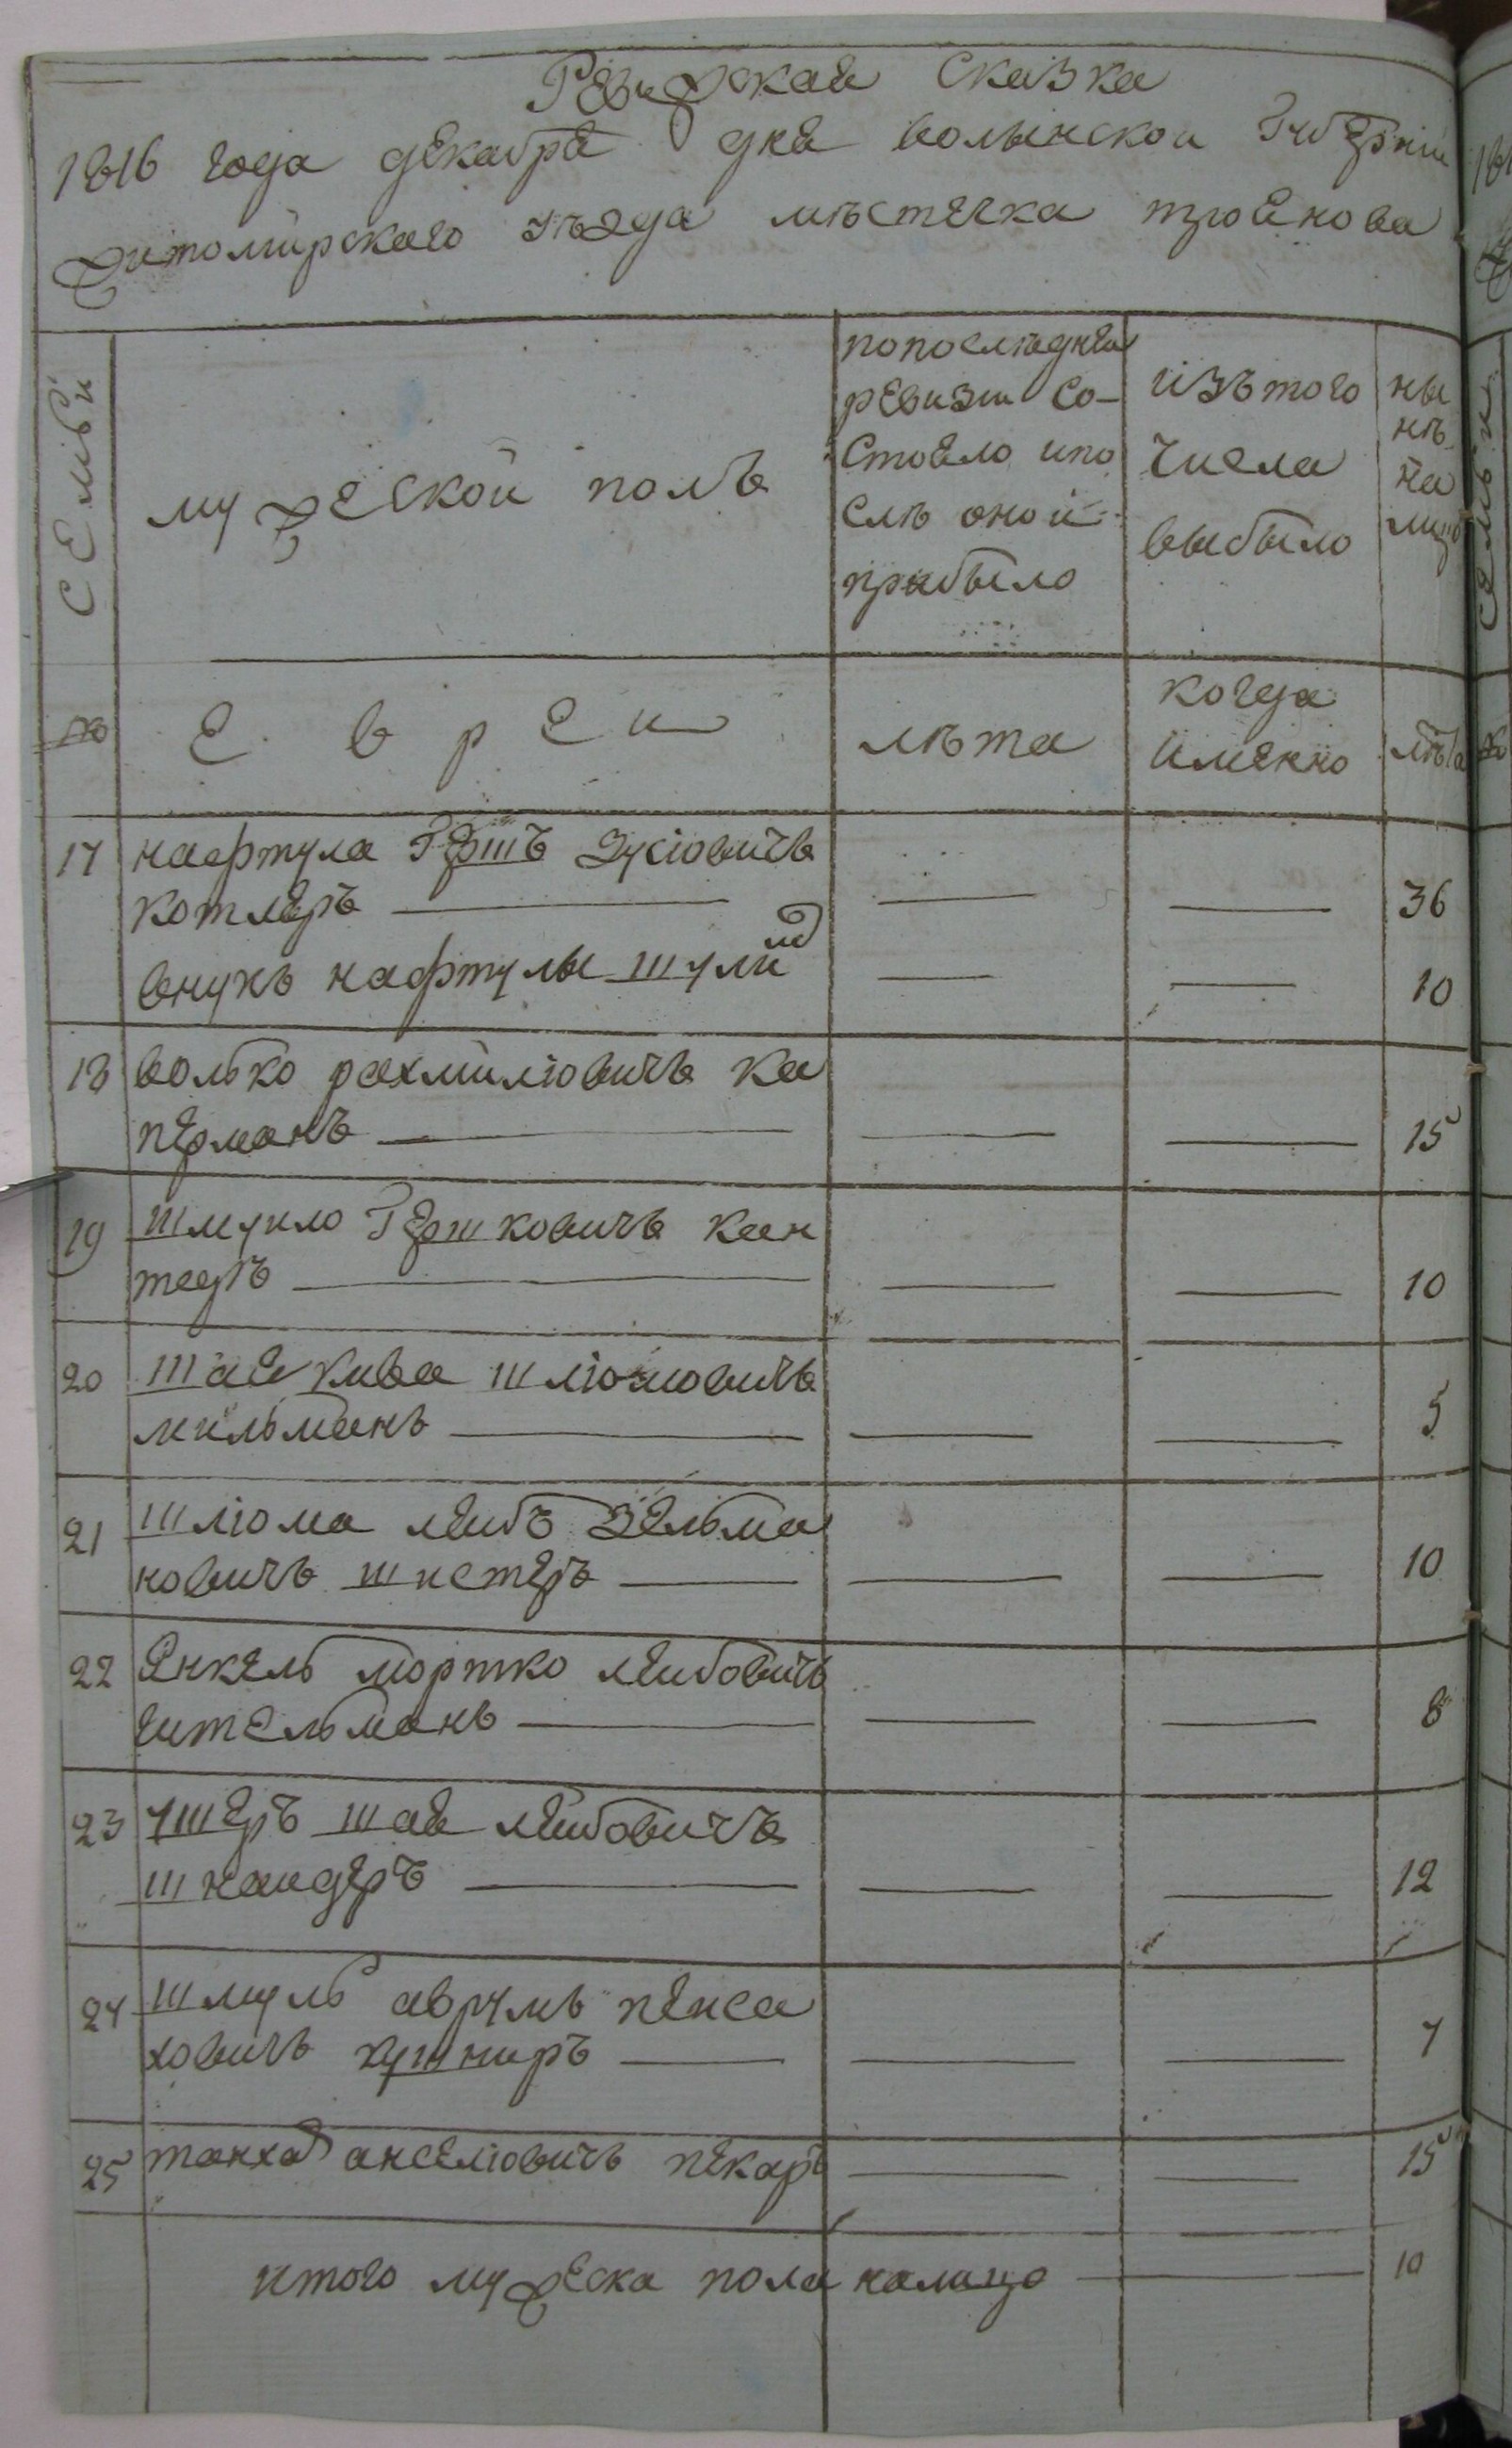 Ревижская Сказка
1816 года декабря дня волынской Губернии
житомирского уезда местечка троянова
Семьи
мужеской полъ
попоследнеи
ревизии со-
стояло ипо
слѣ оной
прибыло
изъ того
числа
выбыло
ны
нѣ
на
лицо
№
Евреи
лѣта
когда
имянно
лѣта
17 нафтула Гершъ Зусіовичъ
котляръ — — — 36
внукъ нафтулы шулим — — 10
18 волько рахмиліовичъ ка
перманъ — — — 15
19 шмуило Гершковичъ кан
таръ — — — 10
20 шая кива шліомовичъ
мильманъ — — — 5
21 шліома лейбъ Зельма
новичъ шистеръ — — — 10
22 Янкель мортко лейбовичъ
гительманъ — — — 8
23 ушеръ шая лейбовичъ
шнайдеръ — — — 12
24 шмуль аврумъ пейса
ховичъ кушниръ — — — 7
25 танхо анселіовичъ пекаръ — — 15
итого мужеска пола налицо — 10